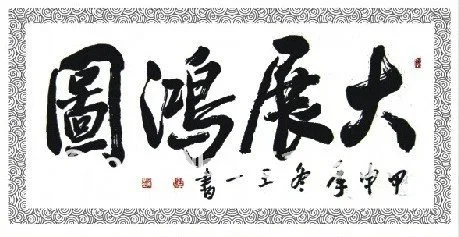 大展鴻圖
甲申年冬王一書